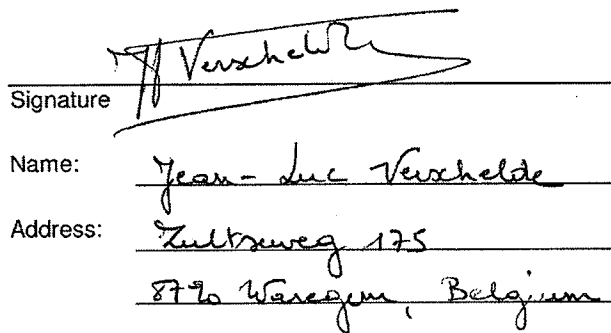 Verschelde
Signature
Name: Jean-Luc Verschelde
Address: Zultseweg 175
8790 Waregem, Belgium